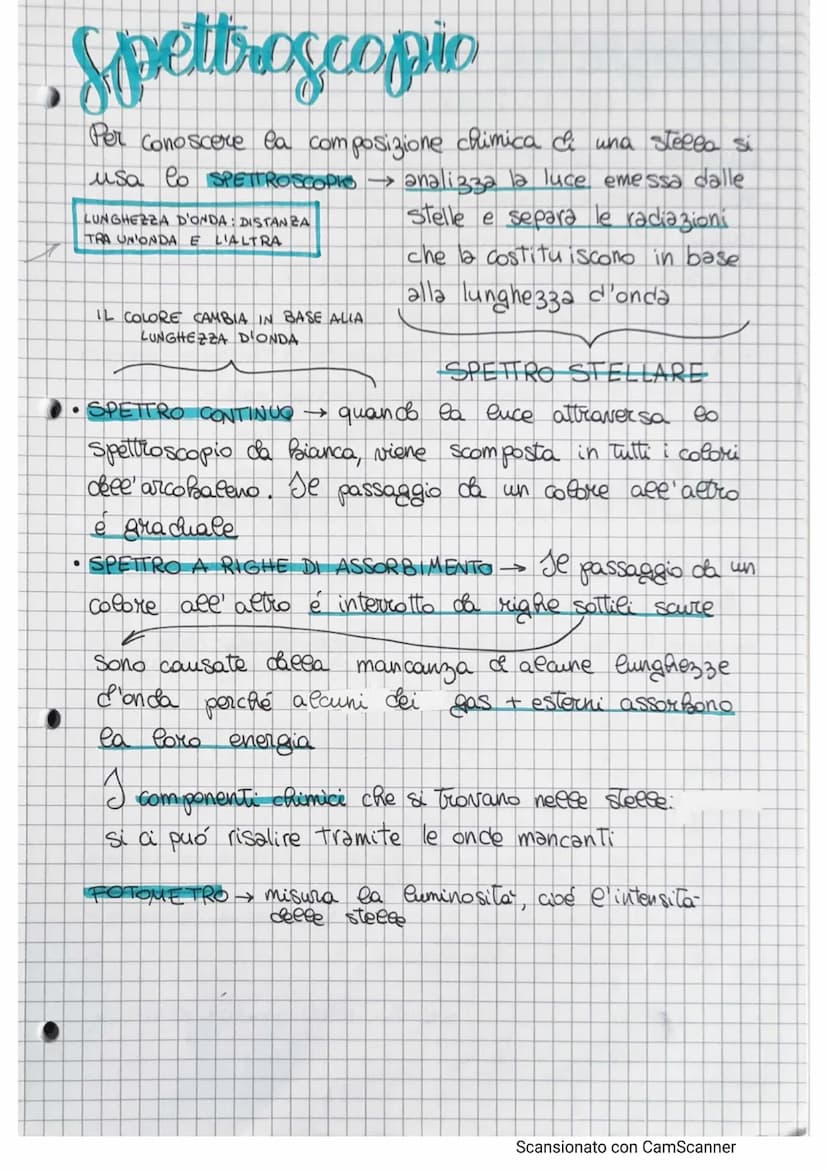 Spettroscopio
Per conoscere la composizione chimica di una stella si
usa lo SPETTROSCOPIO → analizza la luce emessa dalle
stelle e separa le radiazioni
che la costituiscono in base
alla lunghezza d'onda
LUNGHEZZA D'ONDA: DISTANZA
TRA UN'ONDA E L'ALTRA
IL COLORE CAMBIA IN BASE ALLA
LUNGHEZZA D'ONDA
SPETTRO STELLARE
• SPETTRO CONTINUO → quando la luce attraversa lo
spettroscopio da bianca, viene scomposta in tutti i colori
dell'arcobaleno. Il passaggio da un colore all'altro
é graduale
• SPETTRO A RIGHE DI ASSORBIMENTO → Il passaggio da un
colore all'altro é interrotto da righe sottili scure
Sono causate dalla mancanza di alcune lunghezze
d'onda perché alcuni dei gas + esterni assorbono
la loro energia
I componenti chimici che si trovano nelle stelle:
si ci puó risalire tramite le onde mancanti
FOTOMETRO → misura la luminosità, cioé l'intensità
delle stelle
Scansionato con CamScanner